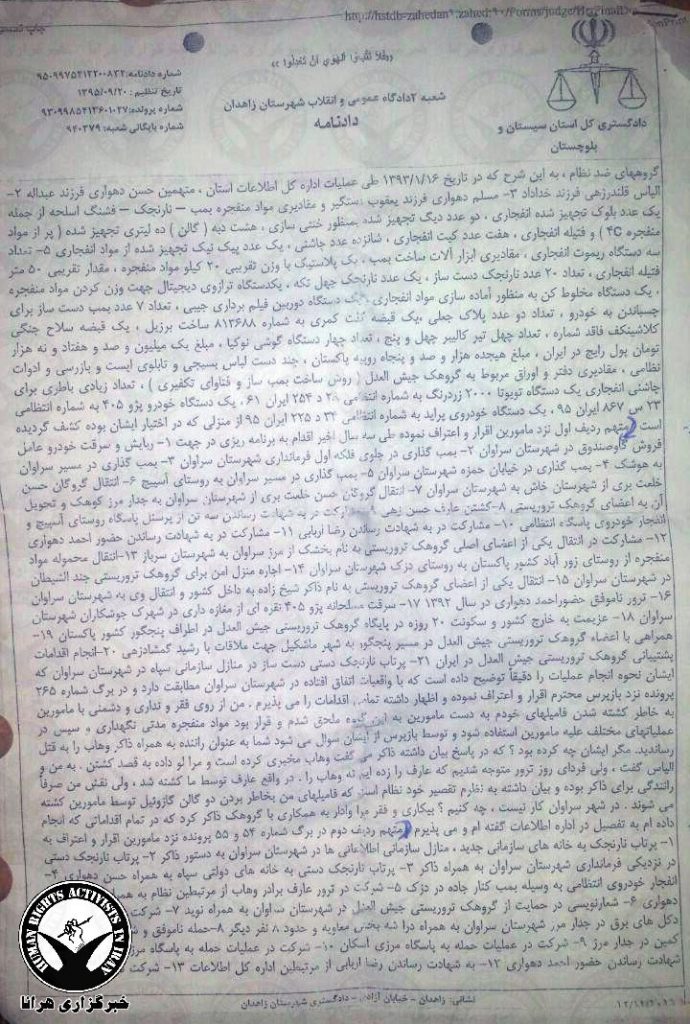 http://hstdb-zahedan
چاپ
«فلا تتبعوا الهوی ان تعدلوا»
شماره دادنامه: ۹۵۰۹۹۷۵۴۱۲۲۰۰۸۳۲
تاریخ تنظیم: ۱۳۹۵/۰۹/۲۰
شماره پرونده: ۹۳۰۹۹۸۵۴۱۲۶۰۱۰۲۷
شماره بایگانی شعبه: ۹۴۰۳۷۹
شعبه ۲ دادگاه عمومی و انقلاب شهرستان زاهدان
دادنامه
دادگستری کل استان سیستان و
بلوچستان
گروههای ضد نظام ، به این شرح که در تاریخ ۱۳۹۳/۱/۱۶ طی عملیات اداره کل اطلاعات استان ، متهمین حسن دهواری فرزند عبداله ۲-
الیاس قلندرزهی فرزند خداداد ۳- مسلم دهواری فرزند یعقوب دستگیر و مقادیری مواد منفجره بمب – نارنجک – فشنگ اسلحه از جمله
یک عدد بلوک تجهیز شده انفجاری ، دو عدد دیگ تجهیز شده بمنظور خنثی سازی ، هشت دبه ( گالن ) ده لیتری تجهیز شده ( پر از مواد
منفجره 4C ) و فتیله انفجاری ، هفت عدد کیت انفجاری ، شانزده عدد چاشنی ، یک عدد پیک نیک تجهیز شده از مواد انفجاری ۵- تعداد
سه دستگاه ریموت انفجاری ، مقادیری ابزار آلات ساخت بمب ، یک پلاستیک با وزن تقریبی ۲۰ کیلو مواد منفجره ، مقدار تقریبی ۵۰ متر
فتیله انفجاری ، تعداد ۲۰ عدد نارنجک دست ساز ، یک عدد نارنجک چهل تکه ، یکدستگاه ترازوی دیجیتال جهت وزن کردن مواد منفجره
، یک دستگاه مخلوط کن به منظور آماده سازی مواد انفجاری ، یک دستگاه دوربین فیلم برداری جیبی ، تعداد ۷ عدد بمب دست ساز برای
چسباندن به خودرو ، تعداد دو عدد پلاک جعلی ،یک قبضه کلت کمری به شماره ۸۱۳۶۸۸ ساخت برزیل ، یک قبضه سلاح جنگی
کلاشینکف فاقد شماره ، تعداد چهل تیر کالیبر چهل و پنج ، تعداد چهار دستگاه گوشی نوکیا ، مبلغ یک میلیون و صد و هفتاد و نه هزار
تومان پول رایج در ایران ، مبلغ هیجده هزار و صد و پنجاه روپیه پاکستان ، چند دست لباس بسیجی و تابلوی ایست و بازرسی و ادوات
نظامی ، مقادیری دفتر و اوراق مربوط به گروهک جیش العدل ( روش ساخت بمب ساز و فتاوای تکفیری ) ، تعداد زیادی باطری برای
چاشنی انفجاری یک دستگاه تویوتا ۲۰۰۰ زردرنگ به شماره انتظامی ۲۸ د ۲۵۴ ایران ۶۱ ، یک دستگاه خودرو پژو ۴۰۵ به شماره انتظامی
۲۳ س ۸۶۷ ایران ۹۵ ، یک دستگاه خودروی پراید به شماره انتظامی ۳۴ د ۲۲۵ ایران ۹۵ از منزلی که در اختیار ایشان بوده کشف گردیده
است متهم ردیف اول نزد مامورین اقرار و اعتراف نموده طی سه سال اخیر اقدام به برنامه ریزی در جهت ۱- ربایش و سرقت خودرو عامل
فروش گاوصندوق در شهرستان سراوان ۲- بمب گذاری در جلوی فلکه اول فرمانداری شهرستان سراوان ۳- بمب گذاری در مسیر سراوان
به هوشک ۴- بمب گذاری در خیابان حمزه شهرستان سراوان ۵- بمب گذاری در مسیر سراوان به روستای آسپیچ ۶- انتقال گروگان حسن
خلعت بری از شهرستان خاش به شهرستان سراوان ۷- انتقال گروگان حسن خلعت بری از شهرستان سراوان به جدار مرز کوهک و تحویل
آن به اعضای گروهک تروریستی ۸-کشتن عارف حسن زهی ۹- مشارکت در به شهادت رساندن سه تن از پرسنل پاسگاه روستای آسپیچ و
انفجار خودروی پاسگاه انتظامی ۱۰- مشارکت در به شهادت رساندن رضا اربابی ۱۱- مشارکت در به شهادت رساندن حضور احمد دهواری
۱۲- مشارکت در انتقال یکی از اعضای اصلی گروهک تروریستی به نام بخشک از مرز سراوان به شهرستان سرباز ۱۳-انتقال محموله مواد
منفجره از روستای زور آباد کشور پاکستان به روستای دزک شهرستان سراوان ۱۴- اجاره منزل امن برای گروهک تروریستی جند الشیطان
در شهرستان سراوان ۱۵- انتقال یکی از اعضای گروهک تروریستی به نام ذاکر شیخ زاده به داخل کشور و انتقال وی به شهرستان سراوان
۱۶- ترور ناموفق حضوراحمد دهواری در سال ۱۳۹۲ ۱۷- سرقت مسلحانه پژو ۴۰۵ نقره ای از مغازه داری در شهرک جوشکاران شهرستان
سراوان ۱۸- عزیمت به خارج کشور و سکونت ۲۰ روزه در پایگاه گروهک تروریستی جیش العدل در اطراف پنجگور کشور پاکستان ۱۹-
همراهی با اعضاء گروهک تروریستی جیش العدل در مسیر پنجگور به شهر ماشکیل جهت ملاقات با رشید گمشادزهی ۲۰-انجام اقدامات
پشتیبانی گروهک تروریستی جیش العدل در ایران ۲۱- پرتاب نارنجک دستی دست ساز در منازل سازمانی سپاه در شهرستان سراوان که
ایشان نحوه انجام عملیات را دقیقا توضیح داده است که با واقعیات اتفاق افتاده در شهرستان سراوان مطابقت دارد و در برگ شماره ۲۶۵
پرونده نزد بازپرس محترم اقرار و اعتراف نموده و اظهار داشته تمامی اقدامات را می پذیرم . من از روی فقر و نداری و دشمنی با مامورین
به خاطر کشته شدن فامیلهای خودم به دست مامورین به این گروه ملحق شدم و قرار بود مواد منفجره مدتی نگهداری و سپس در
عملیاتهای مختلف علیه مامورین استفاده شود و توسط بازپرس از ایشان سوال می شود شما به عنوان راننده به همراه ذاکر وهاب را به قتل
رساندید. مگر ایشان چه کرده بود ؟ که در پاسخ بیان داشته ذاکر می گفت وهاب مخبری کرده است و مرا لو داده به قصد کشتن . به من و
الیاس گفت ، ولی فردای روز ترور متوجه شدیم که عارف را زده ایم نه وهاب را . در واقع عارف توسط ما کشته شد ، ولی نقش من صرفاً
رانندگی برای ذاکر بوده و بیان داشته به نظرم تقصیر خود نظام است که فامیلهای من بخاطر بردن دو گالن گازوئیل توسط مامورین کشته
می شوند . در شهر سراوان کار نیست ، چه کنیم ؟ بیکاری و فقر مرا وادار به همکاری با گروهک ذاکر کرد که در تمام اقداماتی که انجام
داده ام به تفصیل در اداره اطلاعات گفته ام و می پذیرم متهم ردیف دوم در برگ شماره ۵۴ و ۵۵ پرونده نزد مامورین اقرار و اعتراف به
۱- پرتاب نارنجک به خانه های سازمانی جدید ، منازل سازمانی اطلاعاتی ها در شهرستان سراوان به دستور ذاکر ۲- پرتاب نارنجک دستی
در نزدیکی فرمانداری شهرستان سراوان به همراه ذاکر ۳- پرتاب نارنجک دستی به خانه های دولتی سپاه به همراه حسن دهواری ۴-
انفجار خودروی انتظامی به وسیله بمب کنار جاده در دزک ۵- شرکت در ترور عارف برادر وهاب از مرتبطین نظام به همراه
دهواری ۶- شعارنویسی در حمایت از گروهک تروریستی جیش العدل در شهرستان سراوان به همراه نوید ۷- شرکت
دکل های برق در جدار مرز شهرستان سراوان به همراه معاویه و حدود ۸ نفر دیگر ۸-حمله ناموفق و
کمین در جدار مرز ۹- شرکت در عملیات حمله به پاسگاه مرزی اسکان ۱۰- شرکت در عملیات حمله به پاسگاه مرزی
شهادت رساندن حضور احمد دهواری ۱۲- به شهادت رساندن رضا اربابی از مرتبطین اداره کل اطلاعات ۱۳- شرکت
نشانی: زاهدان - خیابان آزادی - دادگستری شهرستان زاهدان
HUMAN RIGHTS ACTIVISTS IN IRAN
خبرگزاری هرانا